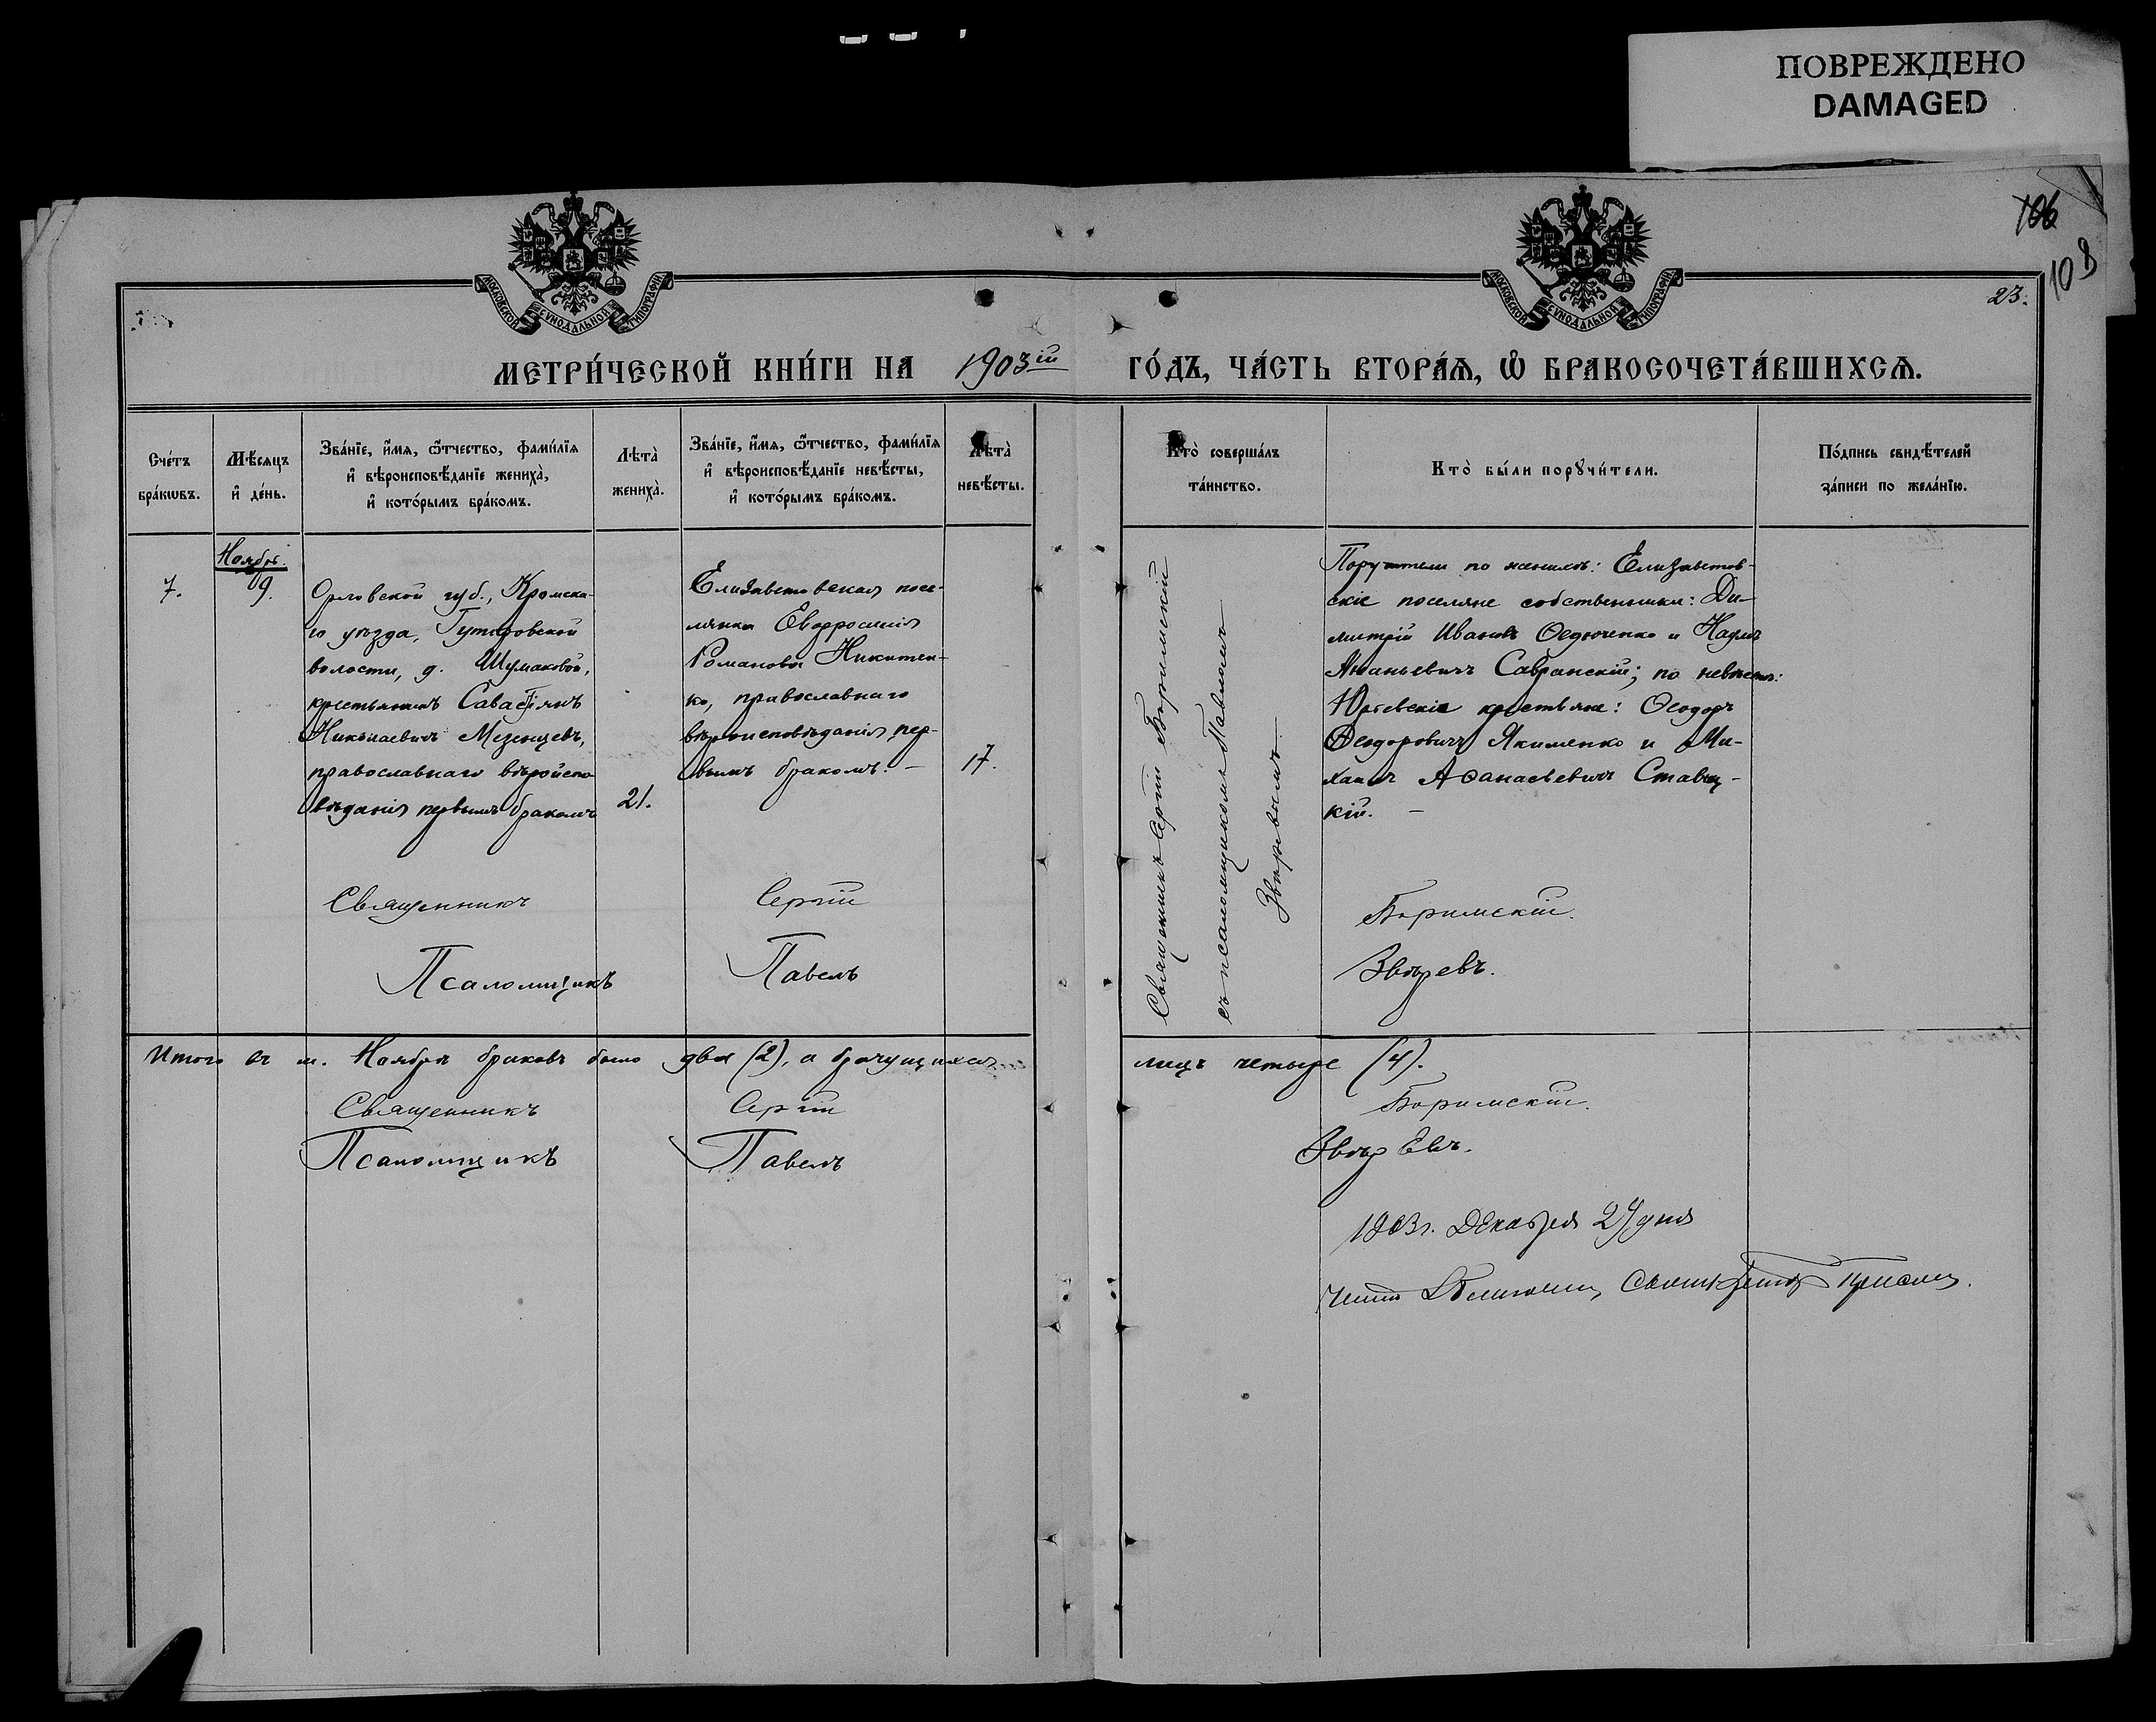 ПОВРЕЖДЕНО
DAMAGED
106
108
23.
МОСКОВСКОЙ СѴНОДАЛЬНОЙ ТИПОГРАФІИ
МОСКОВСКОЙ СѴНОДАЛЬНОЙ ТИПОГРАФІИ
МЕТРИ́ЧЕСКОЙ КНИ́ГИ НА 1903ій ГО́ДЪ, ЧА́СТЬ ВТОРА́Я, Ѡ҆ БРАКОСОЧЕТА́ВШИХСЯ.
Сче́тъ
бра́кѡвъ.
Мѣ́сяцъ
и҆ де́нь.
Зва́нїе, и҆́мя, ѻ҆́тчество, фами́лїя
и҆ вѣроисповѣ́данїе жениха̀,
и҆ кото́рымъ бра́комъ.
Лѣта̀
жениха̀.
Зва́нїе, и҆́мя, ѻ҆́тчество, фами́лїя
и҆ вѣроисповѣ́данїе невѣ́сты,
и҆ кото́рымъ бра́комъ.
Лѣта̀
невѣ́сты.
Кто̀ соверша́лъ
та́инство.
Кто̀ бы́ли порꙋчи́тели.
По́дпись свидѣ́телей
за́писи по жела́нїю.
7.
Ноябрь.
9.
Орловской губ., Кромска-
го уѣзда, Гутровской
волости, д. Шумаковой,
крестьянинъ Савастіянъ
Николаевичъ Мезенцевъ,
православнаго вѣроиспо
вѣданія первымъ бракомъ
21.
Елизаветовская посе-
лянка Евфросинія
Романова Никитен-
ко, православнаго
вѣроисповѣданія, пер-
вымъ бракомъ. –
17.
Священникъ Сергій Боримскій
съ псаломщикомъ Павломъ
Звѣревымъ.
Поручители по женихѣ: Елизаветов-
скіе поселяне собственники: Ди-
митрій Ивановъ Ѳедюченко и
Ананьевичъ Савранскій; по невѣстѣ:
Юрьевскіе крестьяне: Ѳеодоръ
Ѳеодоровичъ Якименко и Ми-
хаилъ Аѳанасьевичъ Ставиц-
кій. –
Священникъ Сергій Боримскій.
Псаломщикъ Павелъ Звѣревъ.
Итого въ м. Ноябрѣ браковъ было два (2), а брачущихся лицъ четыре (4).
Священникъ Сергій Боримскій.
Псаломщикъ Павелъ Звѣревъ.
1903г. Декабря 29 дня